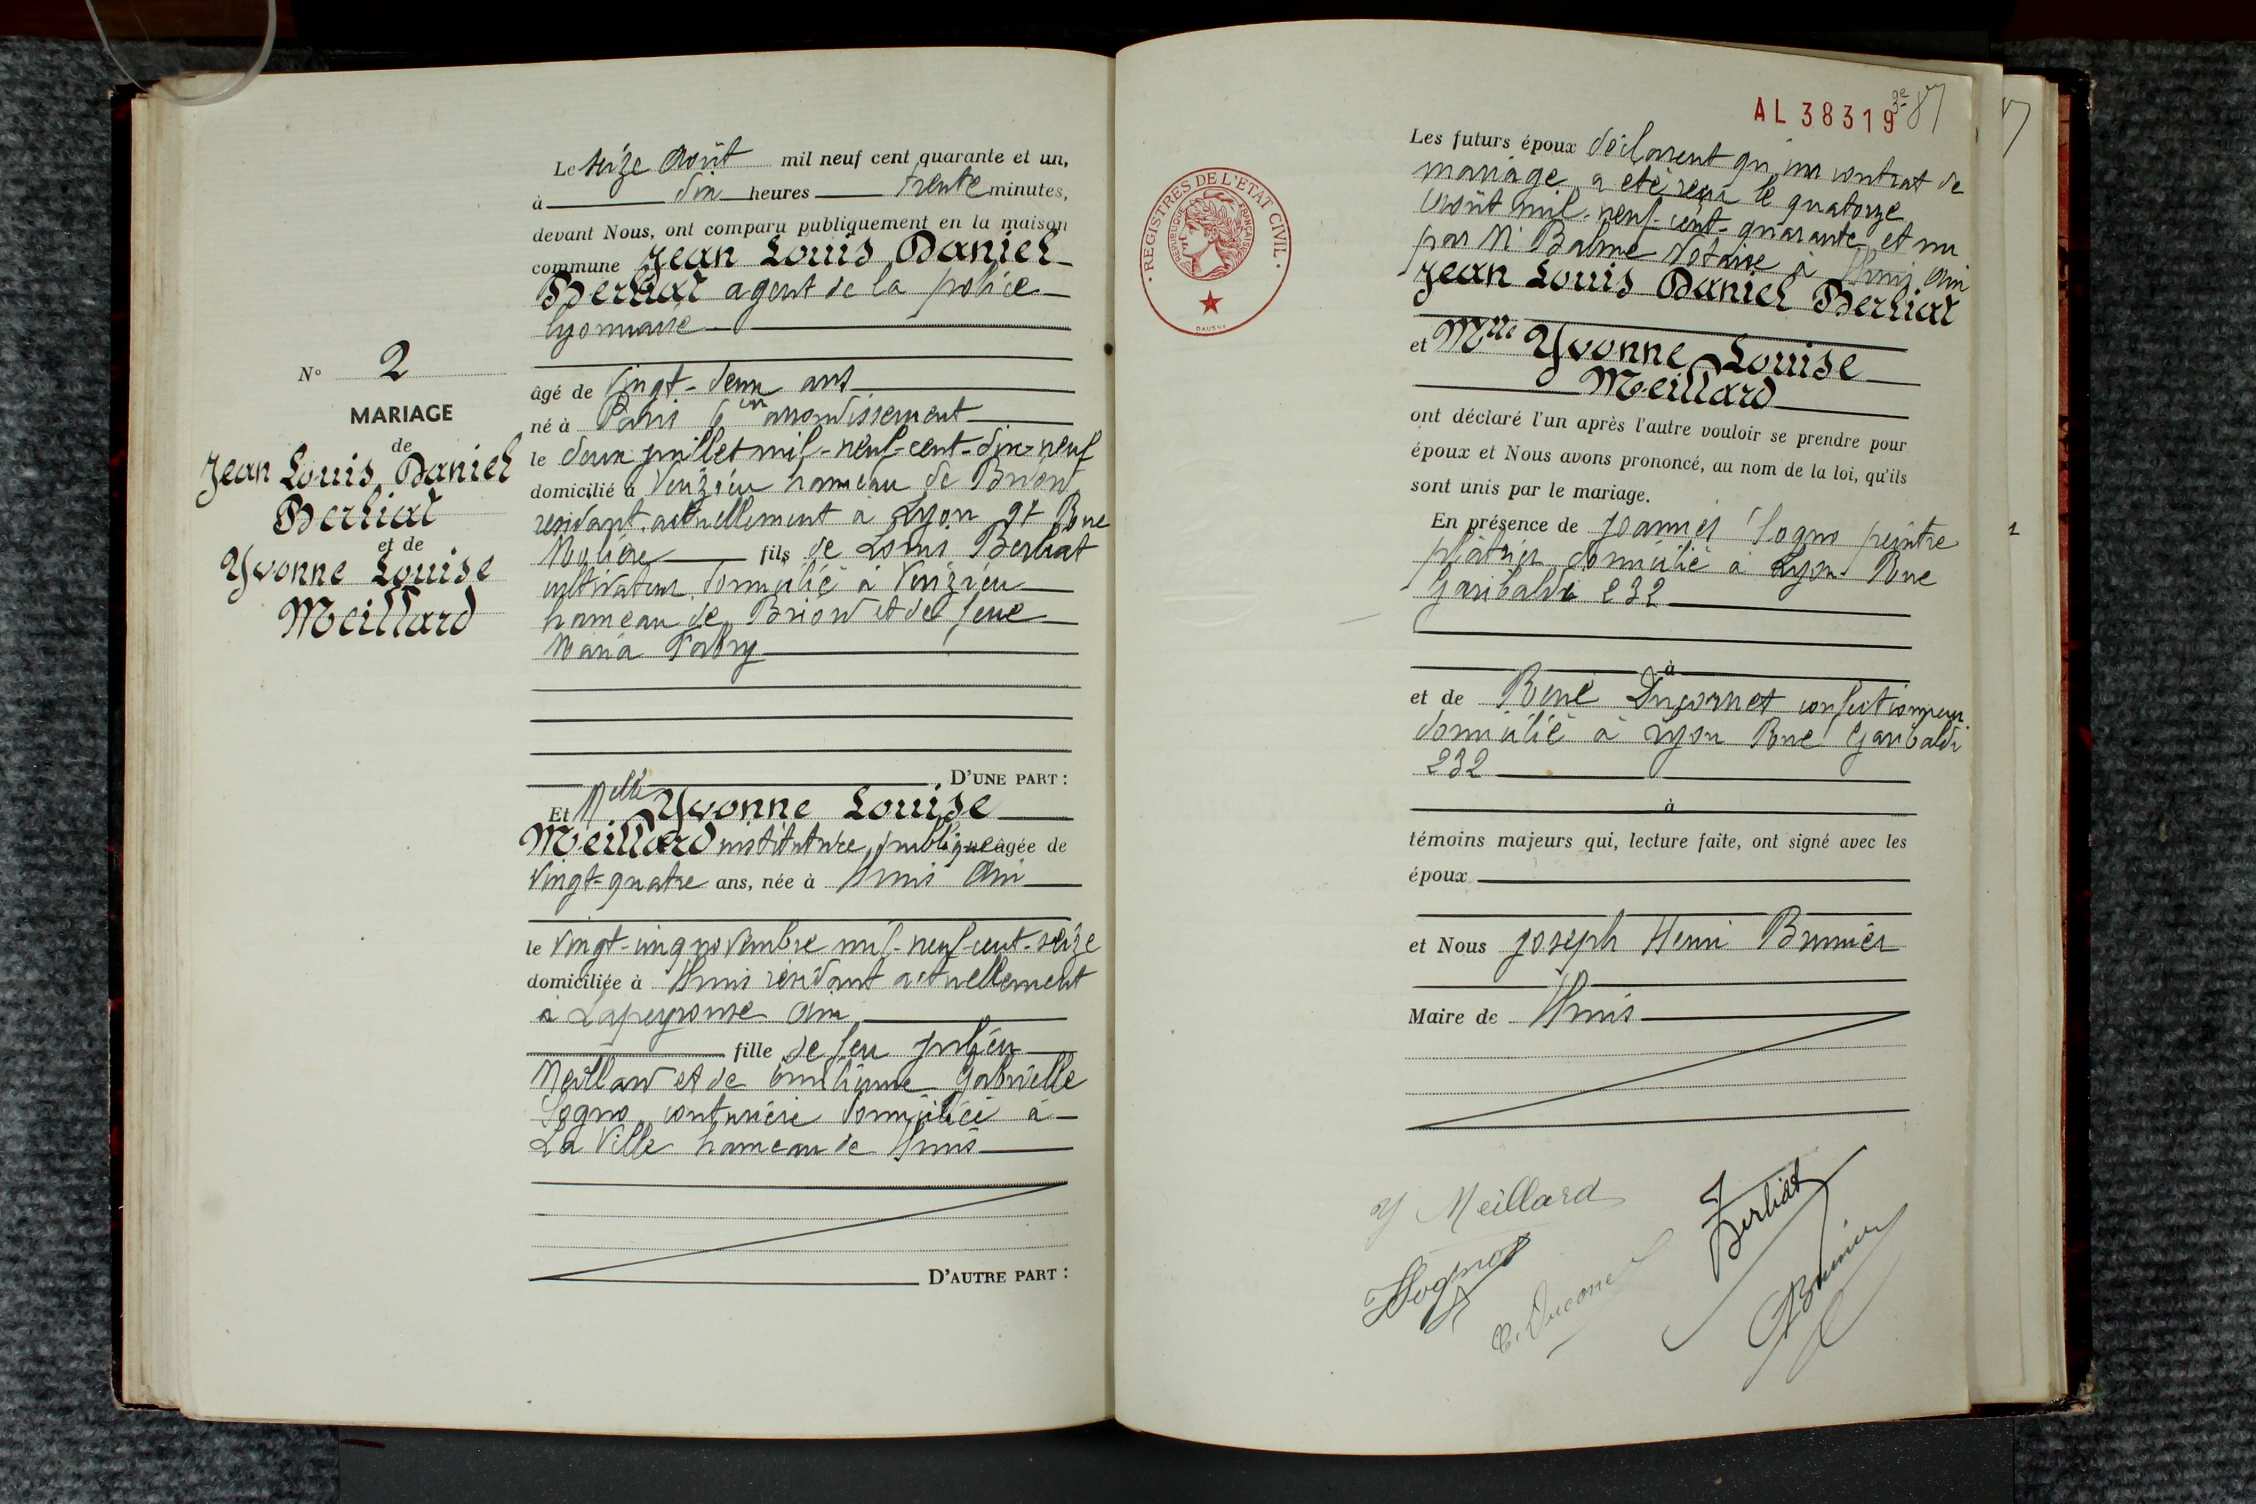 N° 2
MARIAGE
de
Jean Louis Daniel
Berliat
et de
Yvonne Louise
Meillard
Le seize Août mil neuf cent quarante et un,
à dix heures trente minutes,
devant Nous, ont comparu publiquement en la maison
commune Jean Louis Daniel
Berliat agent de la police
lyonnaise
âgé de Vingt-deux ans
né à Paris 6em arrondissement
le deux juillet mil-neuf-cent-dix-neuf
domicilié à Virizieu hameau de Briord
résidant actuellement à Lyon 97 Rue
Molière fils de Louis Berliat
cultivateur domicilié à Virizieu
hameau de Briord et de feue
Maria Fabry
D'UNE PART :
Et Melle Yvonne Louise
Meillard institutrice publique âgée de
Vingt-quatre ans, née à Lhuis Ain
le vingt-cinq novembre mil-neuf-cent-seize
domiciliée à Lhuis résidant actuellement
à Lapeyrouse Ain
fille de feu Julien
Meillard et de Emilienne Gabrielle
Sogno couturière domiciliée à
La Ville hameau de Lhuis
D'AUTRE PART :
AL 38319
3e 87
Les futurs époux déclarent qu'un contrat de
mariage a été reçu le quatorze
Août mil-neuf-cent-quarante et un
par Me Balme Notaire à Lhuis Ain
Jean Louis Daniel Berliat
et Mlle Yvonne Louise
Meillard
ont déclaré l'un après l'autre vouloir se prendre pour
époux et Nous avons prononcé, au nom de la loi, qu'ils
sont unis par le mariage.
En présence de Joannès Sogno peintre
plâtrier domicilié à Lyon Rue
Garibaldi 232
à
et de René Ducornet confectionneur
domicilié à Lyon Rue Garibaldi
232
à
témoins majeurs qui, lecture faite, ont signé avec les
époux
et Nous Joseph Henri Brunier
Maire de Lhuis
REGISTRES DE L'ÉTAT CIVIL
RÉPUBLIQUE FRANÇAISE
Y Meillard
Berliat
Sogno
Brunier